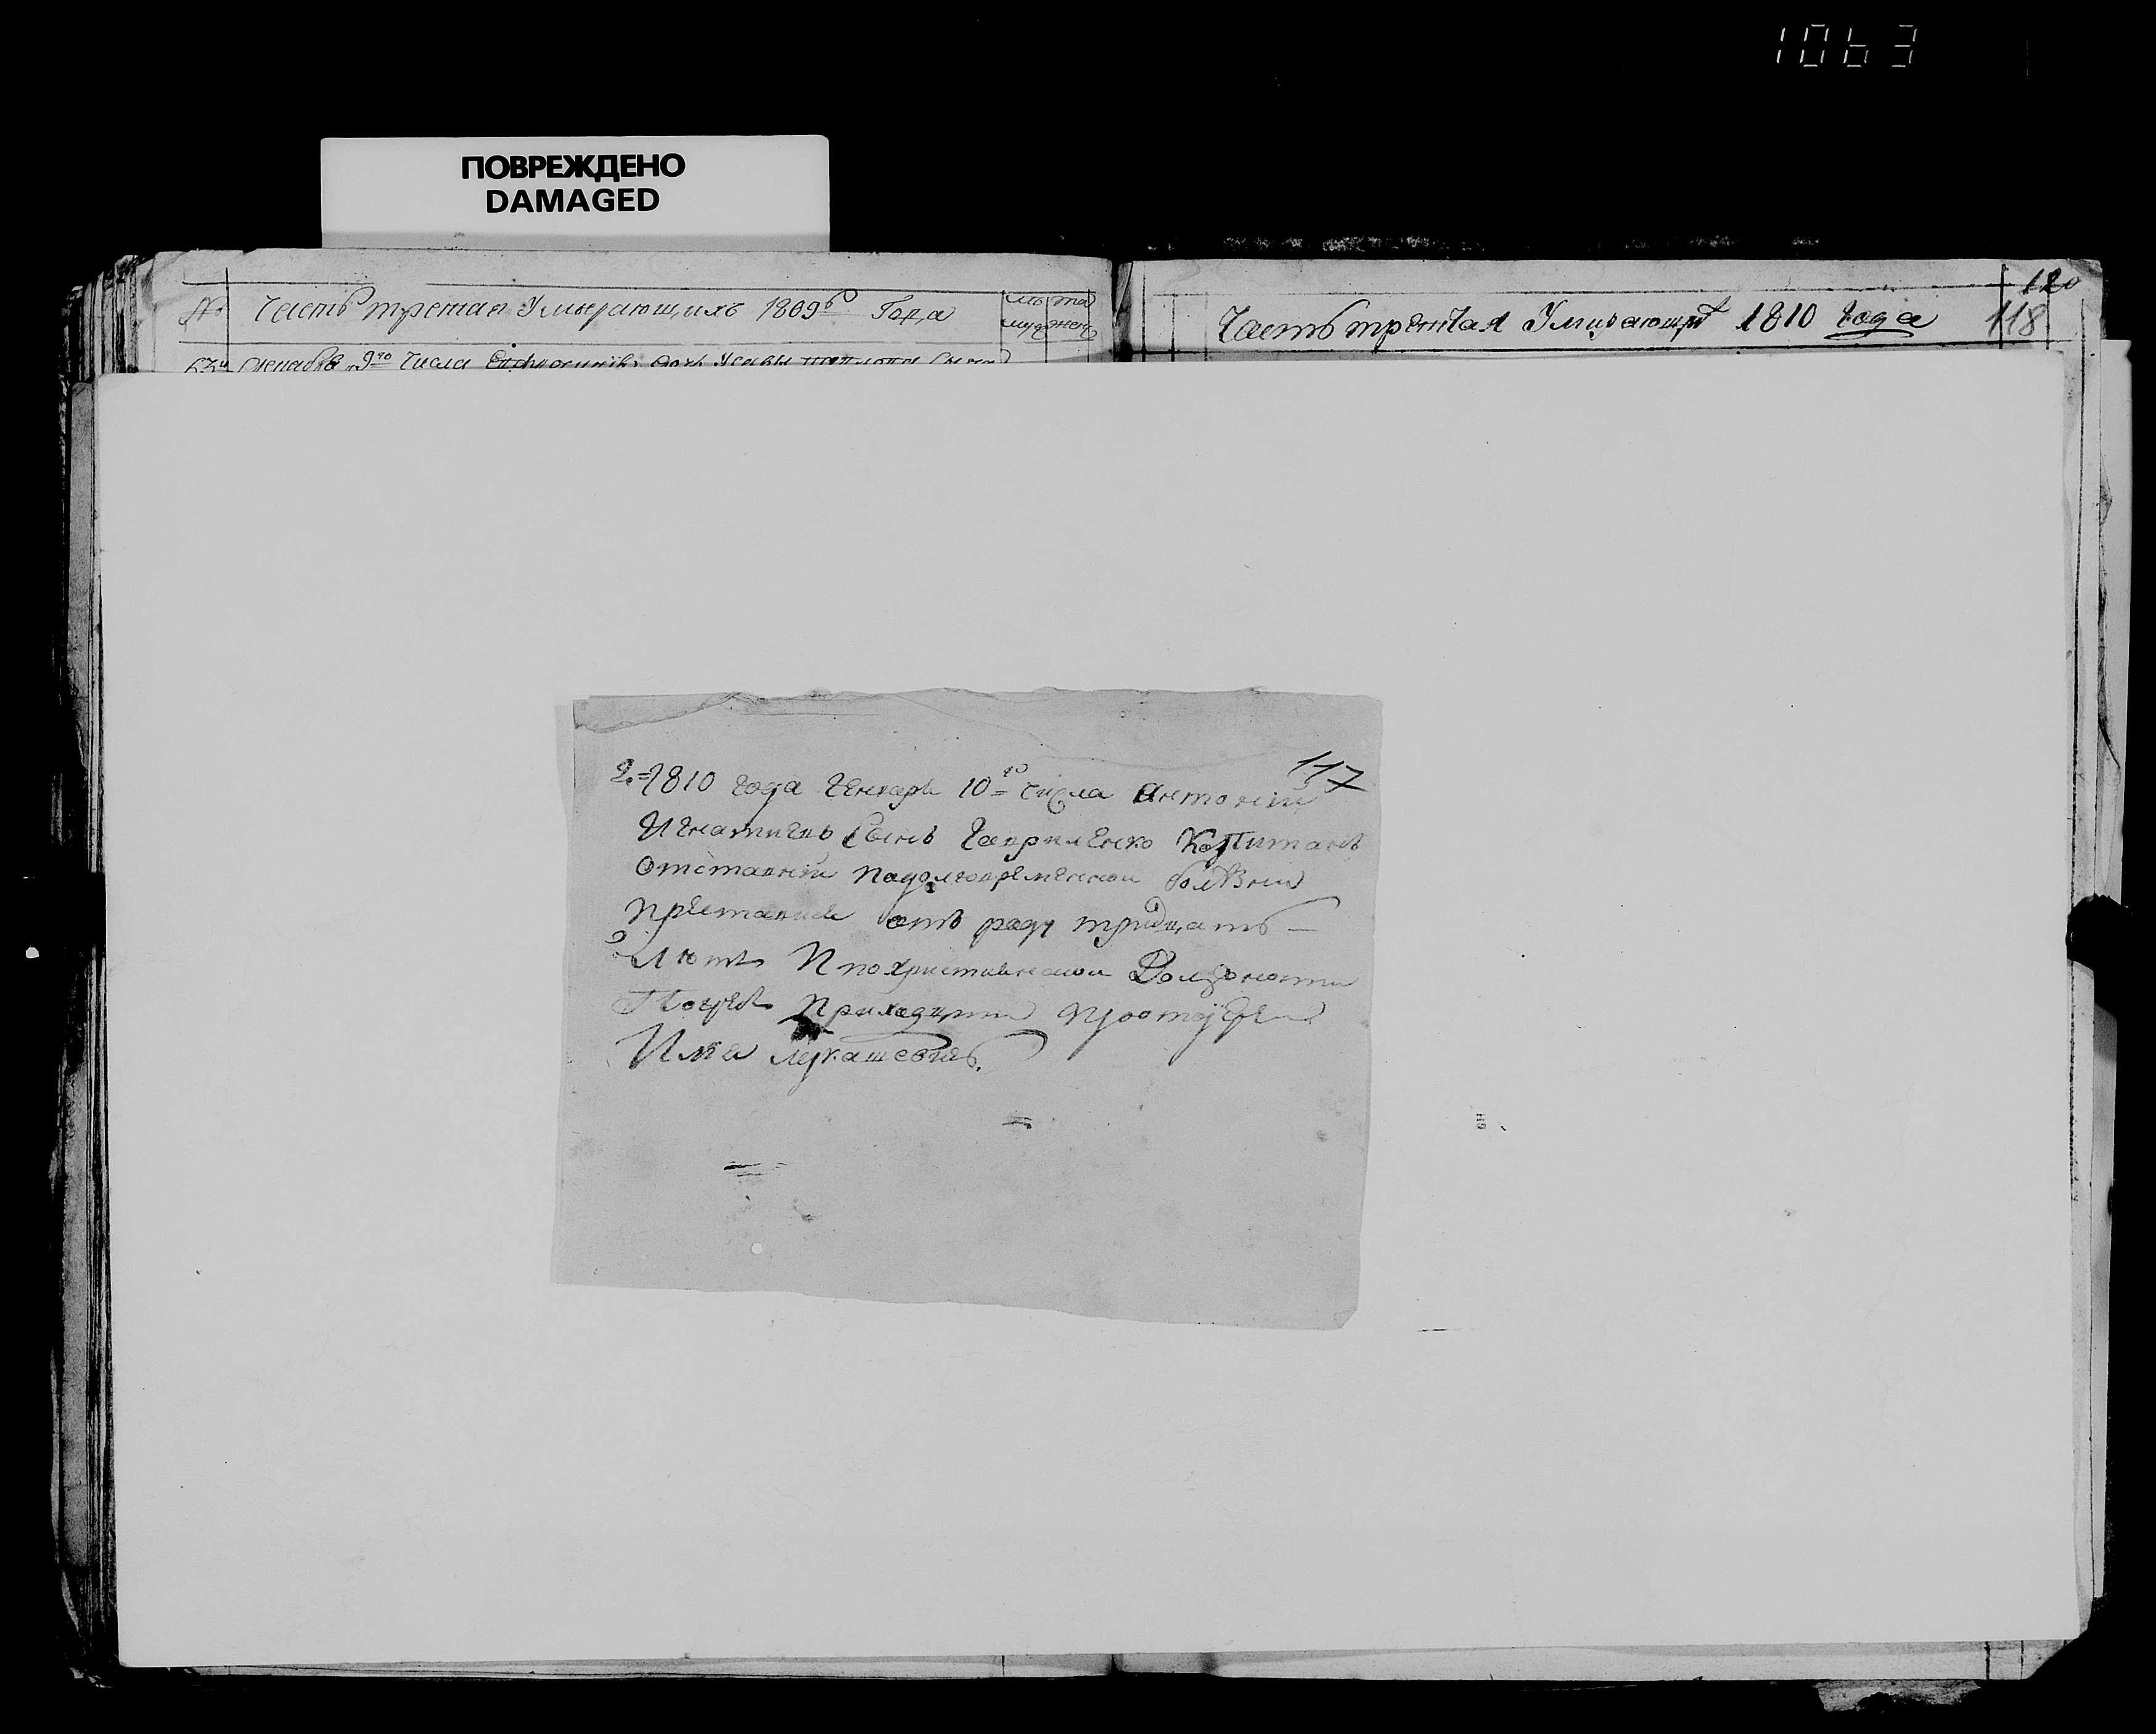 1063
ПОВРЕЖДЕНО
DAMAGED
№ Часть третая Умирающихъ 1809го Года
лѣта
муж женс
Декабря 9го числа
120
Часть третая Умирающихъ 1810 года 118
117
2.=1810 года Генваря 10го числа Антоній
Игнатиевъ Сынъ Гавриленко Капитанъ
Отставній подолговременной болѣзни
преставися отъ роду тридцать
Лютъ И по христианской Должности
Погребъ Приходскій
Илия Лукашевичъ.